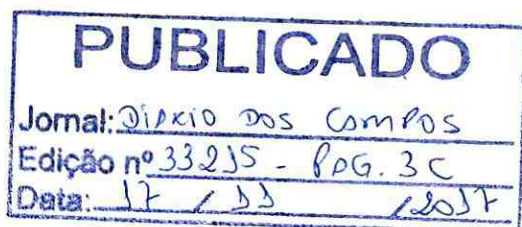 PUBLICADO
Jornal: DIÁRIO DOS CAMPOS
Edição nº 33215 - PÁG. 3C
Data: 17 / 11 / 2017